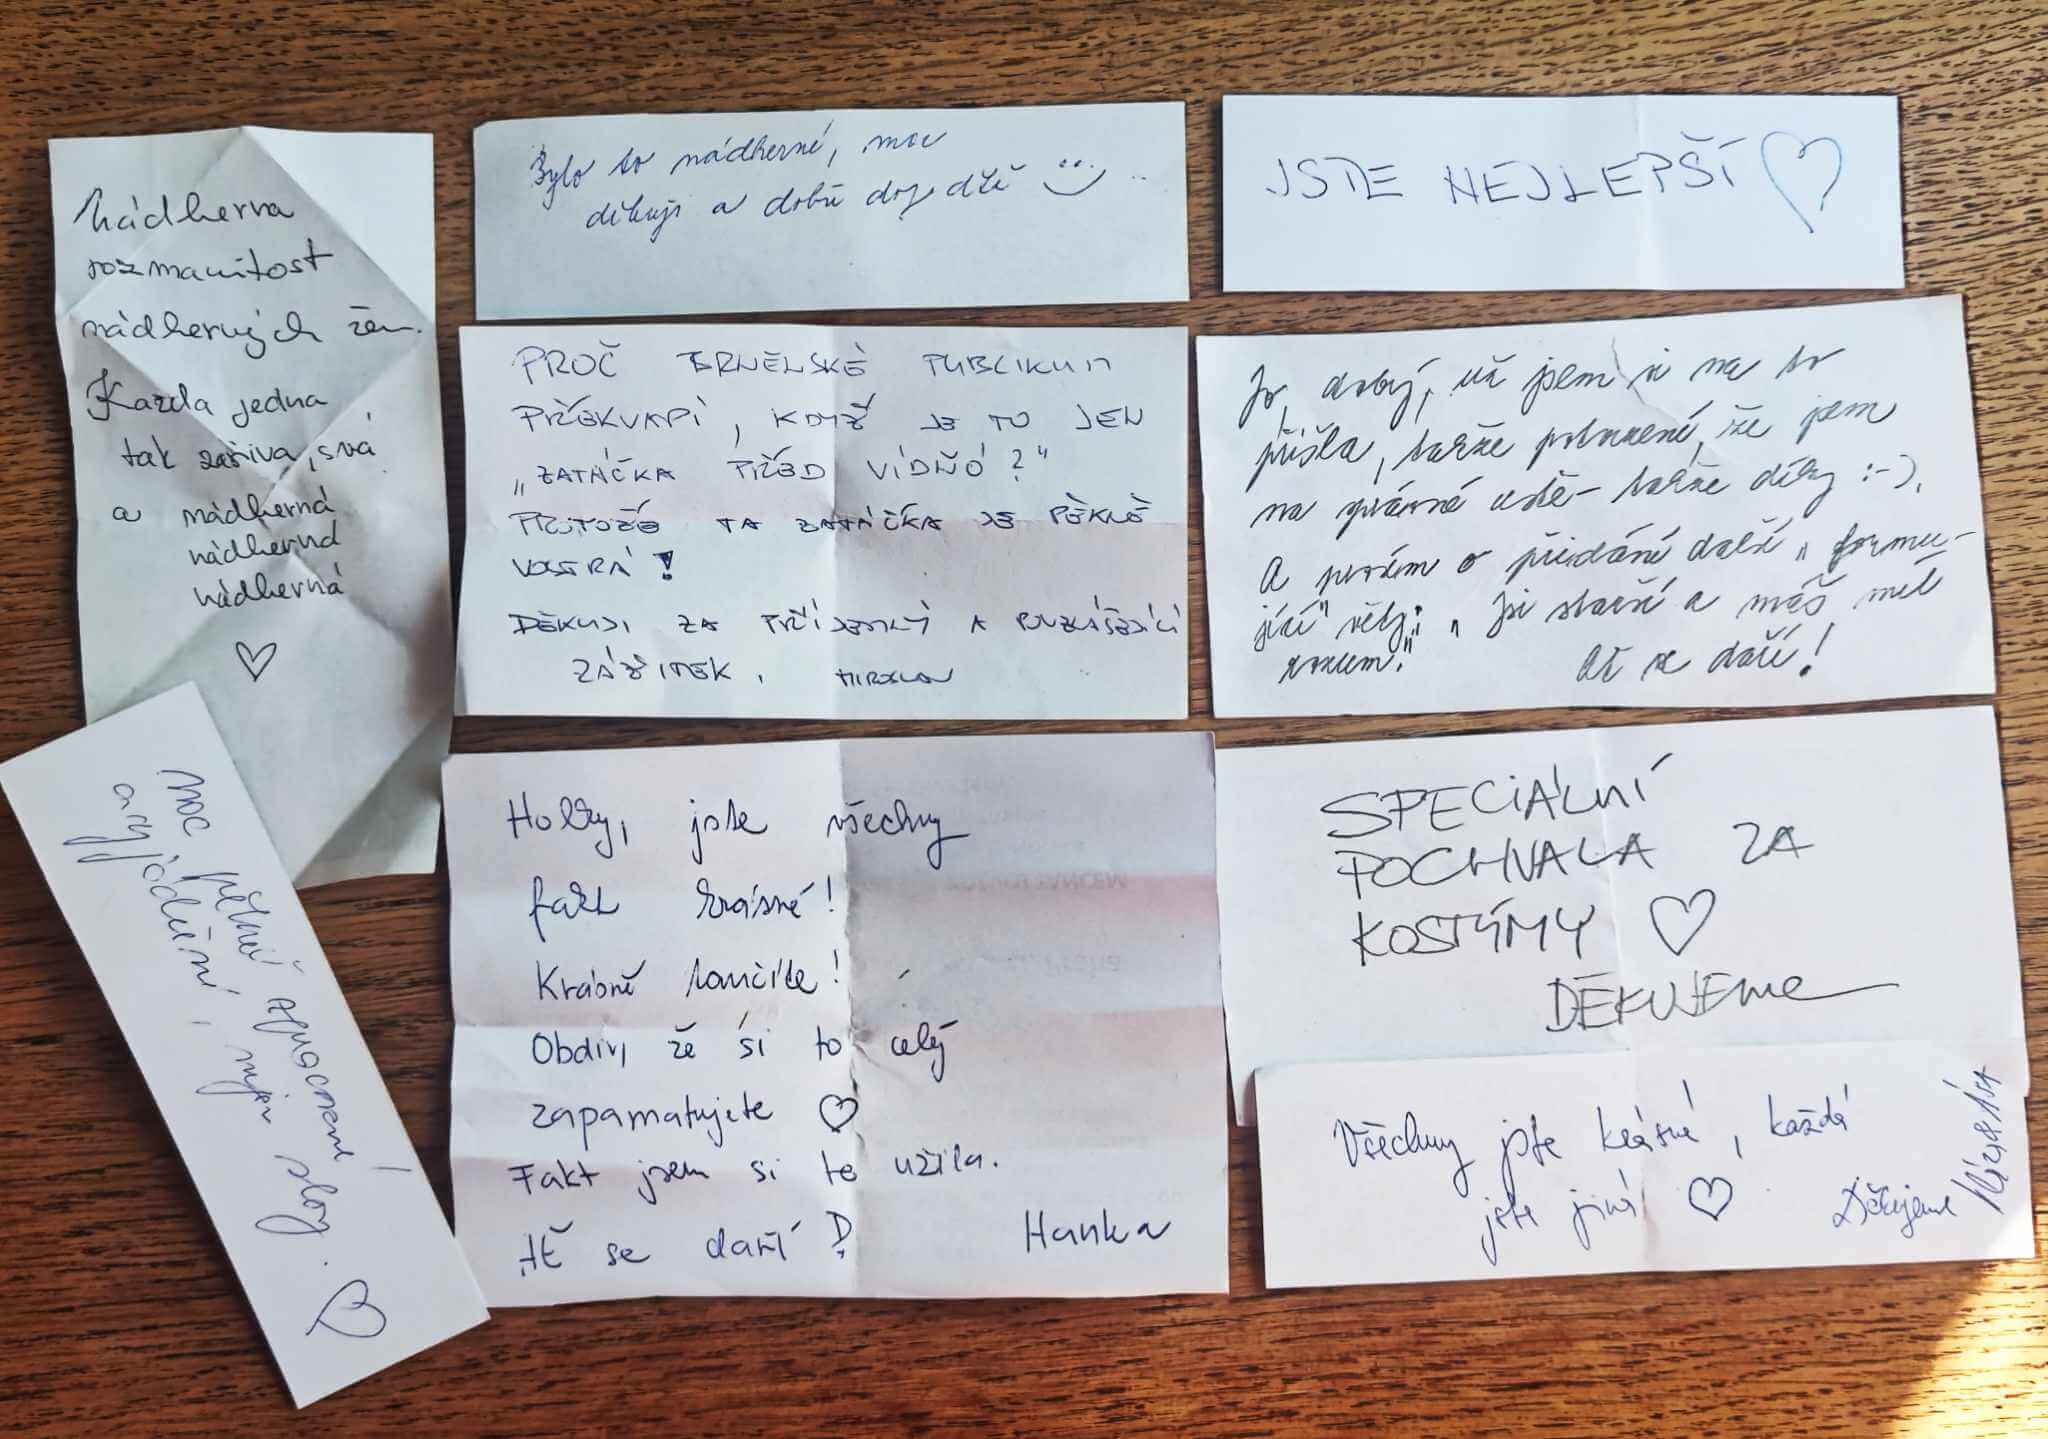 Nádherna
rozmanitost
nádherných žen.
Kazda jedna
tak zařiva, svá
a nádherná
nádherná
nádherná
Bylo to nádherné, moc
děkuji a dobře dojeďte
JSTE NEJLEPŠÍ
PROČ BRNĚNSKÉ PUBLIKUM
PŘEKVAPÍ, KDYŽ JE TO JEN
„ZATÁČKA PŘED VÍDNÍ?“
PROTOŽE TA ZATÁČKA JE PĚKNĚ
VOSTRÁ!
DĚKUJI ZA PŘÍJEMNÝ A POVZNÁŠEJÍCÍ
ZÁŽITEK. MIROSLAV
Jo, dobrý, už jsem si na to
přišla, takže potvrzení, že jsem
na správné cestě - takže díky :-).
A prosím o přidání další „formu-
jící“ věty: „Jsi starší a máš mít
rozum.“ Ať se daří!
moc pěkně zpracované
, nejen slovy.
Holky, jste všechny
fakt krásné!
Krásně tančíte!
Obdiv, že si to celý
zapamatujete
Fakt jsem si to užila.
Ať se daří! Hanka
SPECIÁLNÍ
POCHVALA ZA
KOSTÝMY
DĚKUJEME
Všechny jste krásné, každá
jste jiná Děkujeme